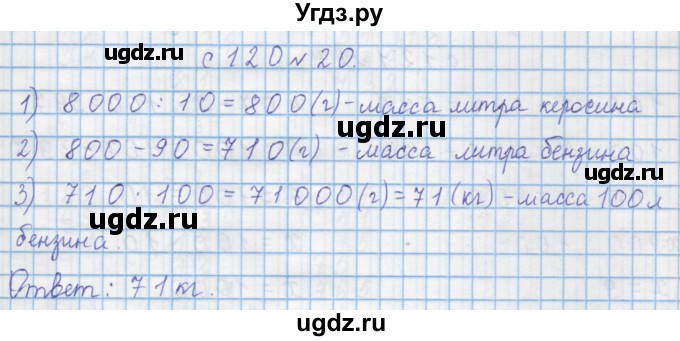 Угдз.ру
ugdz.ru ugdz.ru
с 120 № 20.
1) 8000 : 10 = 800 (г) – масса литра керосина
ugdz.ru
2) 800 – 90 = 710 (г) – масса литра бензина
ugdz.ru ugdz.ru
3) 710 · 100 = 71000 (г) = 71 (кг) – масса 100 л
бензина.
ugdz.ru
Ответ: 71 кг.
ugdz.ru
ugdz.ru